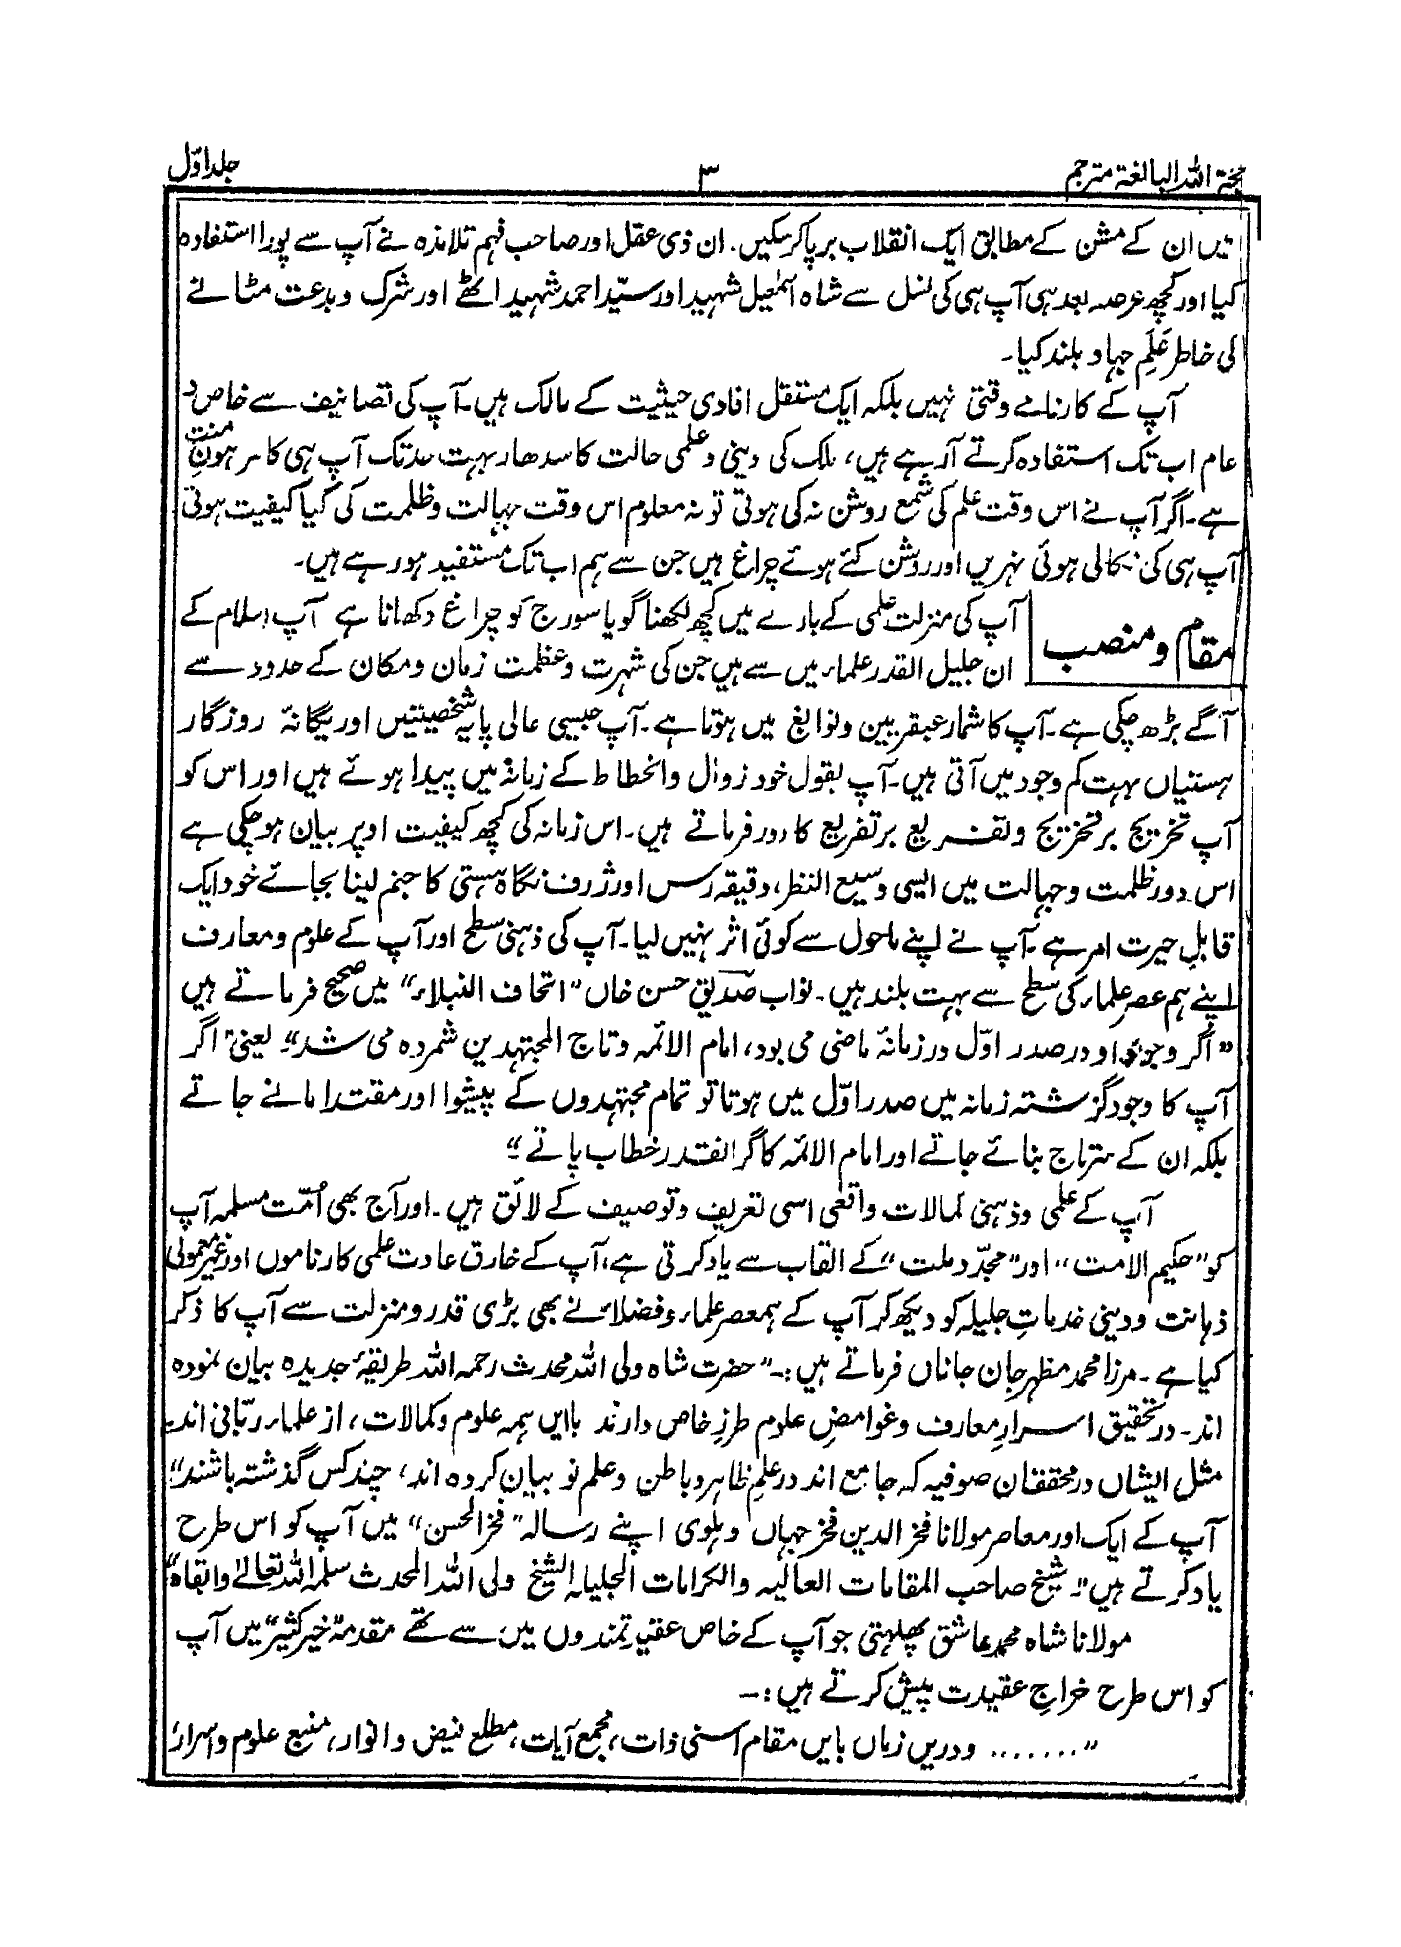 حجۃ اللہ البالغۃ مترجم ۳ جلد اوّل
میں ان کے مشن کے مطابق ایک انقلاب برپا کر سکیں۔ ان ذی عقل اور صاحب فہم تلامذہ نے آپ سے پورا استفادہ
کیا اور کچھ عرصہ بعد ہی آپ ہی کی نسل سے شاہ اسمٰعیل شہید اور سیّد احمد شہید اٹھے اور شرک و بدعت مٹانے
کی خاطر عَلَمِ جہاد بلند کیا۔
آپ کے کارنامے وقتی نہیں بلکہ ایک مستقل افادی حیثیت کے مالک ہیں۔ آپ کی تصانیف سے خاص و
عام اب تک استفادہ کرتے آرہے ہیں، ملک کی دینی و علمی حالت کا سدھار بہت حد تک آپ ہی کا مرہونِ منت
ہے۔ اگر آپ نے اس وقت علم کی شمع روشن نہ کی ہوتی تو نہ معلوم اس وقت جہالت و ظلمت کی کیا کیفیت ہوتی
آپ ہی کی نکالی ہوئی نہریں اور روشن کئے ہوئے چراغ ہیں جن سے ہم اب تک مستفید ہو رہے ہیں۔
مقام و منصب
آپ کی منزلت علمی کے بارے میں کچھ لکھنا گویا سورج کو چراغ دکھانا ہے آپ اسلام کے
ان جلیل القدر علماء میں سے ہیں جن کی شہرت و عظمت زمان و مکان کے حدود سے
آگے بڑھ چکی ہے۔ آپ کا شمار عبقریین و نوابغ میں ہوتا ہے۔ آپ جیسی عالی پایہ شخصیتیں اور یگانۂ روزگار
ہستیاں بہت کم وجود میں آتی ہیں۔ آپ بقول خود زوال و انحطاط کے زمانہ میں پیدا ہوئے ہیں اور اس کو
آپ تخریج بر تخریج و تفریع بر تفریع کا دور فرماتے ہیں۔ اس زمانہ کی کچھ کیفیت اوپر بیان ہو چکی ہے
اس دور ظلمت و جہالت میں ایسی وسیع النظر، دقیقہ رس اور ژرف نگاہ ہستی کا جنم لینا بجائے خود ایک
قابلِ حیرت امر ہے۔ آپ نے اپنے ماحول سے کوئی اثر نہیں لیا۔ آپ کی ذہنی سطح اور آپ کے علوم و معارف
اپنے ہم عصر علماء کی سطح سے بہت بلند ہیں۔ نواب صدّیق حسن خاں "اتحاف النبلاء" میں صحیح فرماتے ہیں
"اگر وجود او در صدر اوّل در زمانۂ ماضی می بود، امام الائمہ و تاج المجتہدین شمردہ می شد"۔ یعنی "اگر
آپ کا وجود گزشتہ زمانہ میں صدر اوّل میں ہوتا تو تمام مجتہدوں کے پیشوا اور مقتدا مانے جاتے
بلکہ ان کے سرتاج بنائے جاتے اور امام الائمہ کا گرانقدر خطاب پاتے"۔
آپ کے علمی و ذہنی کمالات واقعی اسی تعریف و توصیف کے لائق ہیں۔ اور آج بھی اُمّت مسلمہ آپ
کو "حکیم الامت" اور "مجدّد ملت" کے القاب سے یاد کرتی ہے، آپ کے خارق عادت علمی کارناموں اور غیر معمولی
ذہانت و دینی خدماتِ جلیلہ کو دیکھ کر آپ کے ہمعصر علماء و فضلاء نے بھی بڑی قدر و منزلت سے آپ کا ذکر
کیا ہے۔ مرزا محمد مظہر جان جاناں فرماتے ہیں:۔ "حضرت شاہ ولی اللہ محدث رحمہ اللہ طریقۂ جدیدہ بیان نمودہ
اند۔ در تحقیق اسرارِ معارف و غوامضِ علوم طرزِ خاص دارند باایں ہمہ علوم و کمالات، از علماء ربّانی اند۔
مثل ایشاں در محققان صوفیہ کہ جامع اند در علمِ ظاہر و باطن و علم نو بیان کردہ اند، چند کس گذشتہ باشند"
آپ کے ایک اور معاصر مولانا فخر الدین فخر جہاں دہلوی اپنے رسالہ "فخر الحسن" میں آپ کو اس طرح
یاد کرتے ہیں "۔ شیخ صاحب المقامات العالیہ والکرامات الجلیلہ الشیخ ولی اللہ المحدث سلمہ اللہ تعالےٰ وابقاہ"
مولانا شاہ محمد عاشق پھلتی جو آپ کے خاص عقیدتمندوں میں سے تھے مقدمۂ "خیر کثیر" میں آپ
کو اس طرح خراجِ عقیدت پیش کرتے ہیں:۔
"....... و دریں زماں بایں مقام اسنی ذات، مجمع آیات، مطلع فیض و انوار، منبع علوم و اسرار